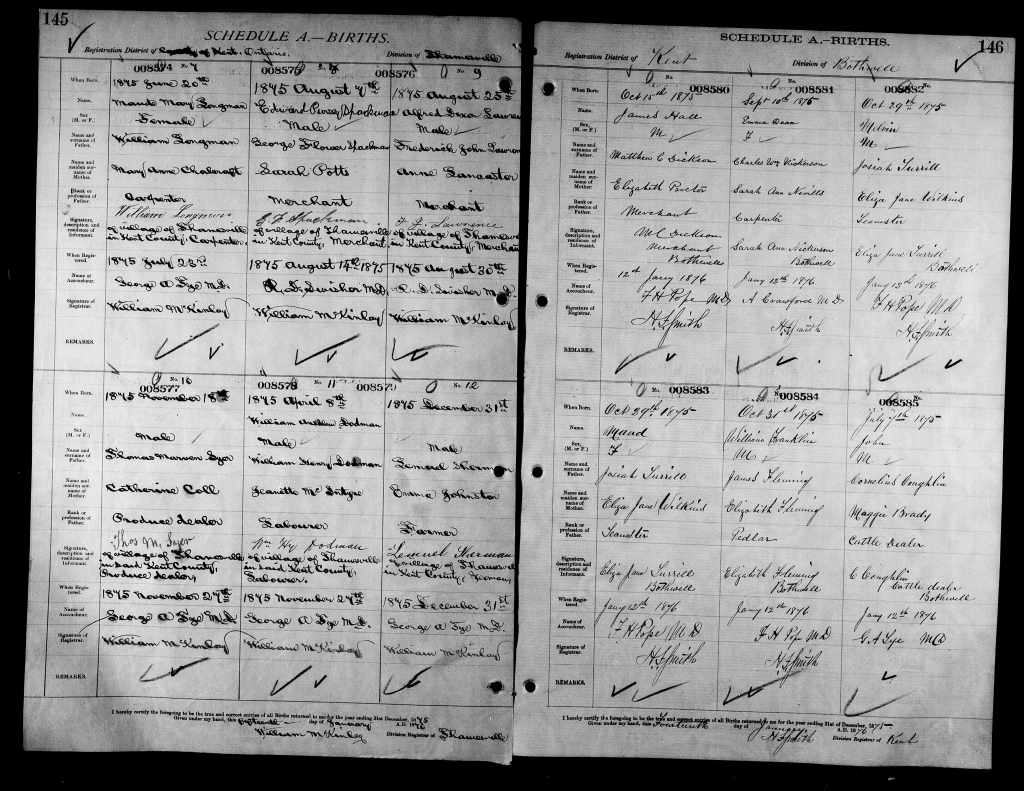 145
SCHEDULE A.—BIRTHS.
Registration District of County of Kent. Ontario. Division of Thamesville
008574 No 7 008575 8 008576 No 9
When Born. 1875 June 20th 1875 August 7th 1875 August 25th
Name. Maude May Longman Edward Percy Alfred Lawrence
Sex. (M. or F.) Female Male Male
Name and surname of Father. William Longman George Flower Frederick John Lawrence
Name and maiden surname of Mother. Mary Ann Chalcraft Sarah Potts Anne Lancaster
Rank or profession of Father. Carpenter Merchant Merchant
Signature, description and residence of Informant. William Longman
of village of Thamesville of village of Thamesville of village of Thamesville
in Kent County, Carpenter. in Kent County, Merchant. in Kent County, Merchant
When Registered. 1875 July 23rd 1875 August 14th 1875 1875 August 30th
Name of Accoucheur. George A Tye M.D. M.D. M.D.
Signature of Registrar. William McKinlay William McKinlay William McKinlay
REMARKS.
No. 10 No. 11 No. 12
008577 008578 008579
When Born. 1875 November 18th 1875 April 8th 1875 December 31st
Name. William Dodman
Sex. (M. or F.) Male Male Male
Name and surname of Father. Thomas William Henry Dodman Lemuel Sherman
Name and maiden surname of Mother. Catherine Coll Jeanette McIntyre Emma Johnston
Rank or profession of Father. Produce dealer Labourer Farmer
Signature, description and residence of Informant. Thos M. Wm Hy Dodman Lemuel
of village of Thamesville of village of Thamesville village of Thamesville
in said Kent County, in said Kent County, in Kent County
Produce dealer, Labourer.
When Registered. 1875 November 27th 1875 November 27th 1875 December 31st
Name of Accoucheur. George A Tye M.D. George A Tye M.D. George A Tye M.D.
Signature of Registrar. William McKinlay William McKinlay William McKinlay
REMARKS.
I hereby certify the foregoing to be the true and correct entries of all Births returned to me for the year ending 31st December, 1875
Given under my hand, this fifteenth day of January A.D. 1876
William McKinlay Division Registrar of Thamesville
SCHEDULE A.—BIRTHS. 146
Registration District of Kent Division of Bothwell
No. 008580 008581 008582
When Born. Oct 15th 1875 Sept 10th 1875 Oct 29th 1875
Name. James Hall Emma Melvin
Sex. (M. or F.) M F M
Name and surname of Father. Matthew C Dickson Charles Wm Dickinson Josiah Turrill
Name and maiden surname of Mother. Elizabeth Proctor Sarah Ann Nevills Eliza Jane Wilkins
Rank or profession of Father. Merchant Carpenter Teamster
Signature, description and residence of Informant. M C Dickson Sarah Ann Dickinson Eliza Jane Turrill
Merchant Bothwell Bothwell Bothwell
When Registered. 12th Jany 1876 Jany 12th 1876 Jany 12th 1876
Name of Accoucheur. F H Pope MD A Crawford MD F H Pope MD
Signature of Registrar. H. F. Smith H. F. Smith H. F. Smith
REMARKS.
No. 008583 008584 008585
When Born. Oct 29th 1875 Oct 31st 1875 July 7th 1875
Name. Maud William Franklin John
Sex. (M. or F.) F M M
Name and surname of Father. Josiah Turrill James Fleming Cornelius Coughlin
Name and maiden surname of Mother. Eliza Jane Wilkins Elizabeth Fleming Maggie Brady
Rank or profession of Father. Teamster Pedlar Cattle Dealer
Signature, description and residence of Informant. Eliza Jane Turrill Elizabeth Fleming C Coughlin
Bothwell Bothwell Cattle dealer Bothwell
When Registered. Jany 12th 1876 Jany 12th 1876 Jany 12th 1876
Name of Accoucheur. F H Pope MD F H Pope MD G. A Tye MD
Signature of Registrar. H. F. Smith H. F. Smith
REMARKS.
I hereby certify the foregoing to be the true and correct entries of all Births returned to me for the year ending 31st of December, 1875
Given under my hand, this Fourteenth day of January A.D. 1876
H. F. Smith Division Registrar of Kent